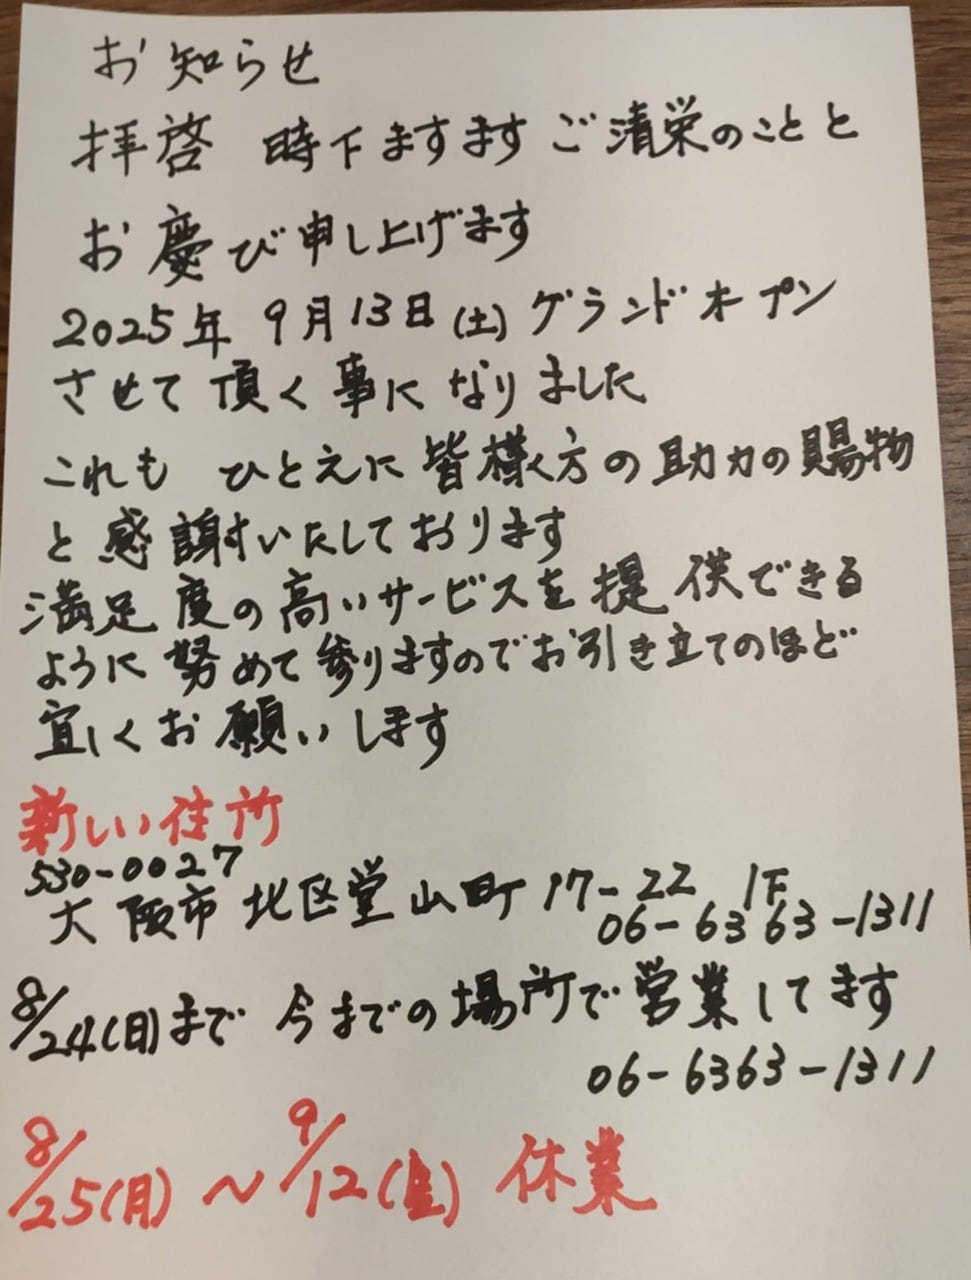 お知らせ
拝啓 時下ますますご清栄のことと
お慶び申し上げます
2025年 9月13日(土)グランドオープン
させて頂く事になりました
これも ひとえに皆様方の助力の賜物
と感謝いたしております
満足度の高いサービスを提供できる
ように努めて参りますのでお引き立てのほど
宜しくお願いします
新しい住所
530-0027
大阪市北区堂山町17-22 1F
06-6363-1311
8/24(日)まで 今までの場所で営業してます
06-6363-1311
8/25(月)~9/12(金)休業